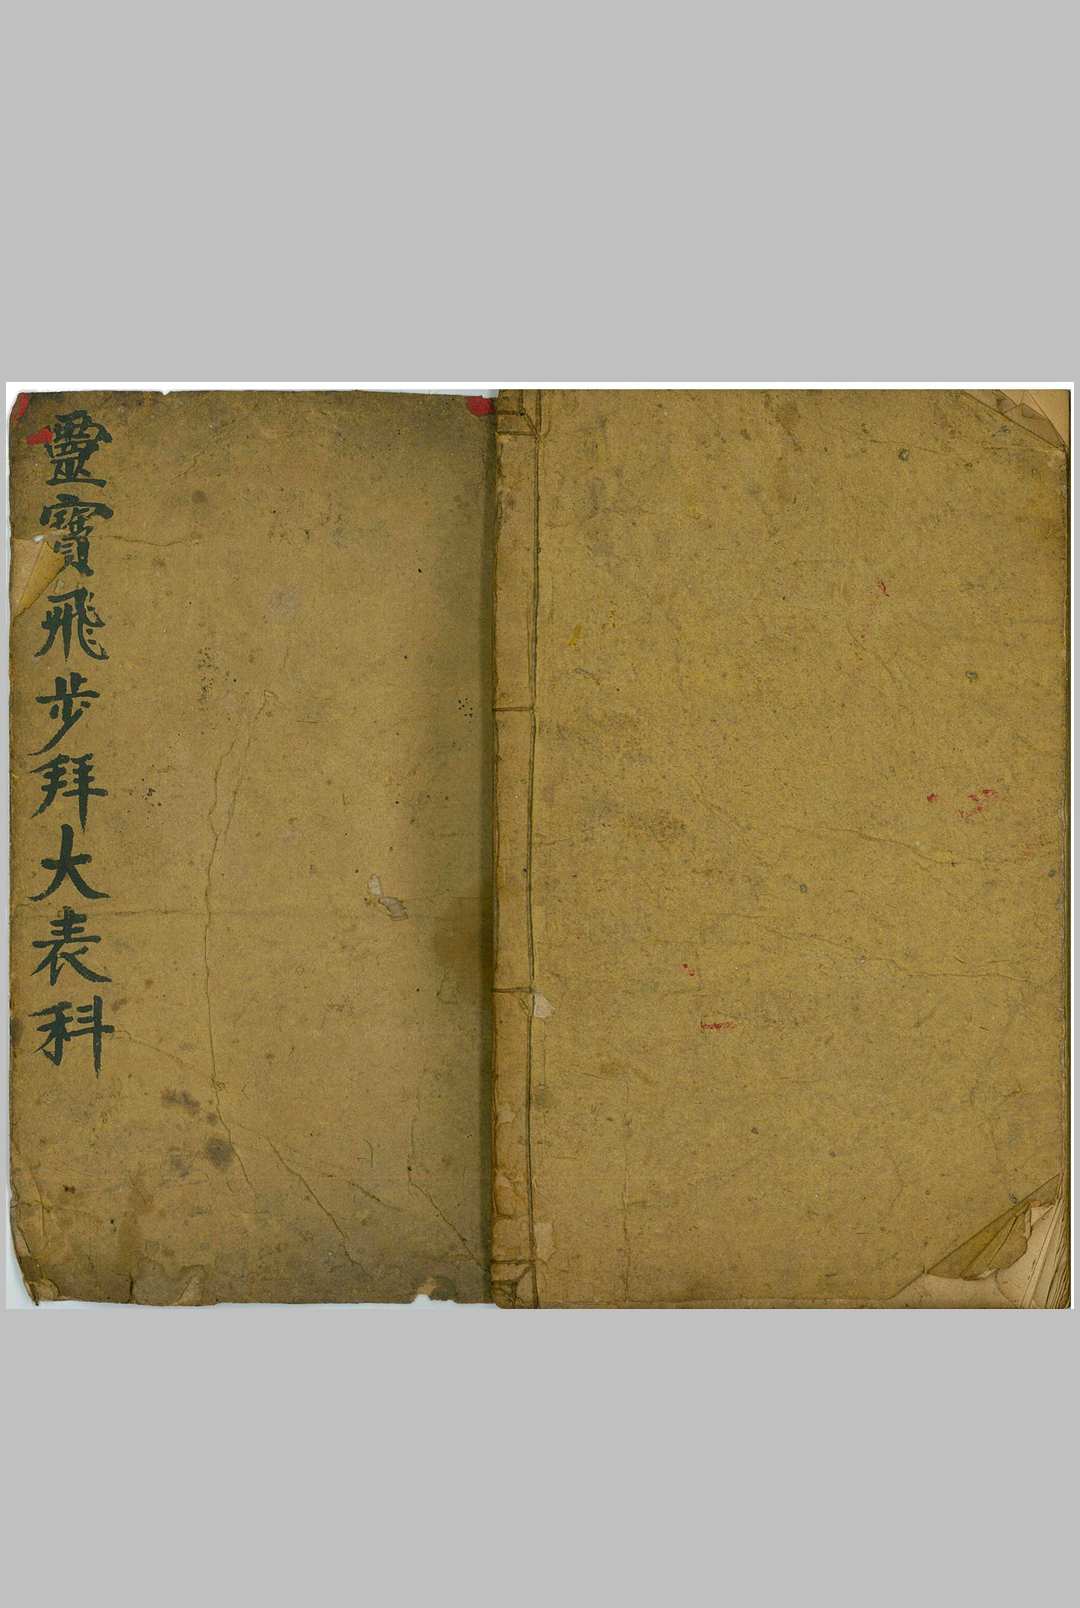 靈寶飛步拜大表科